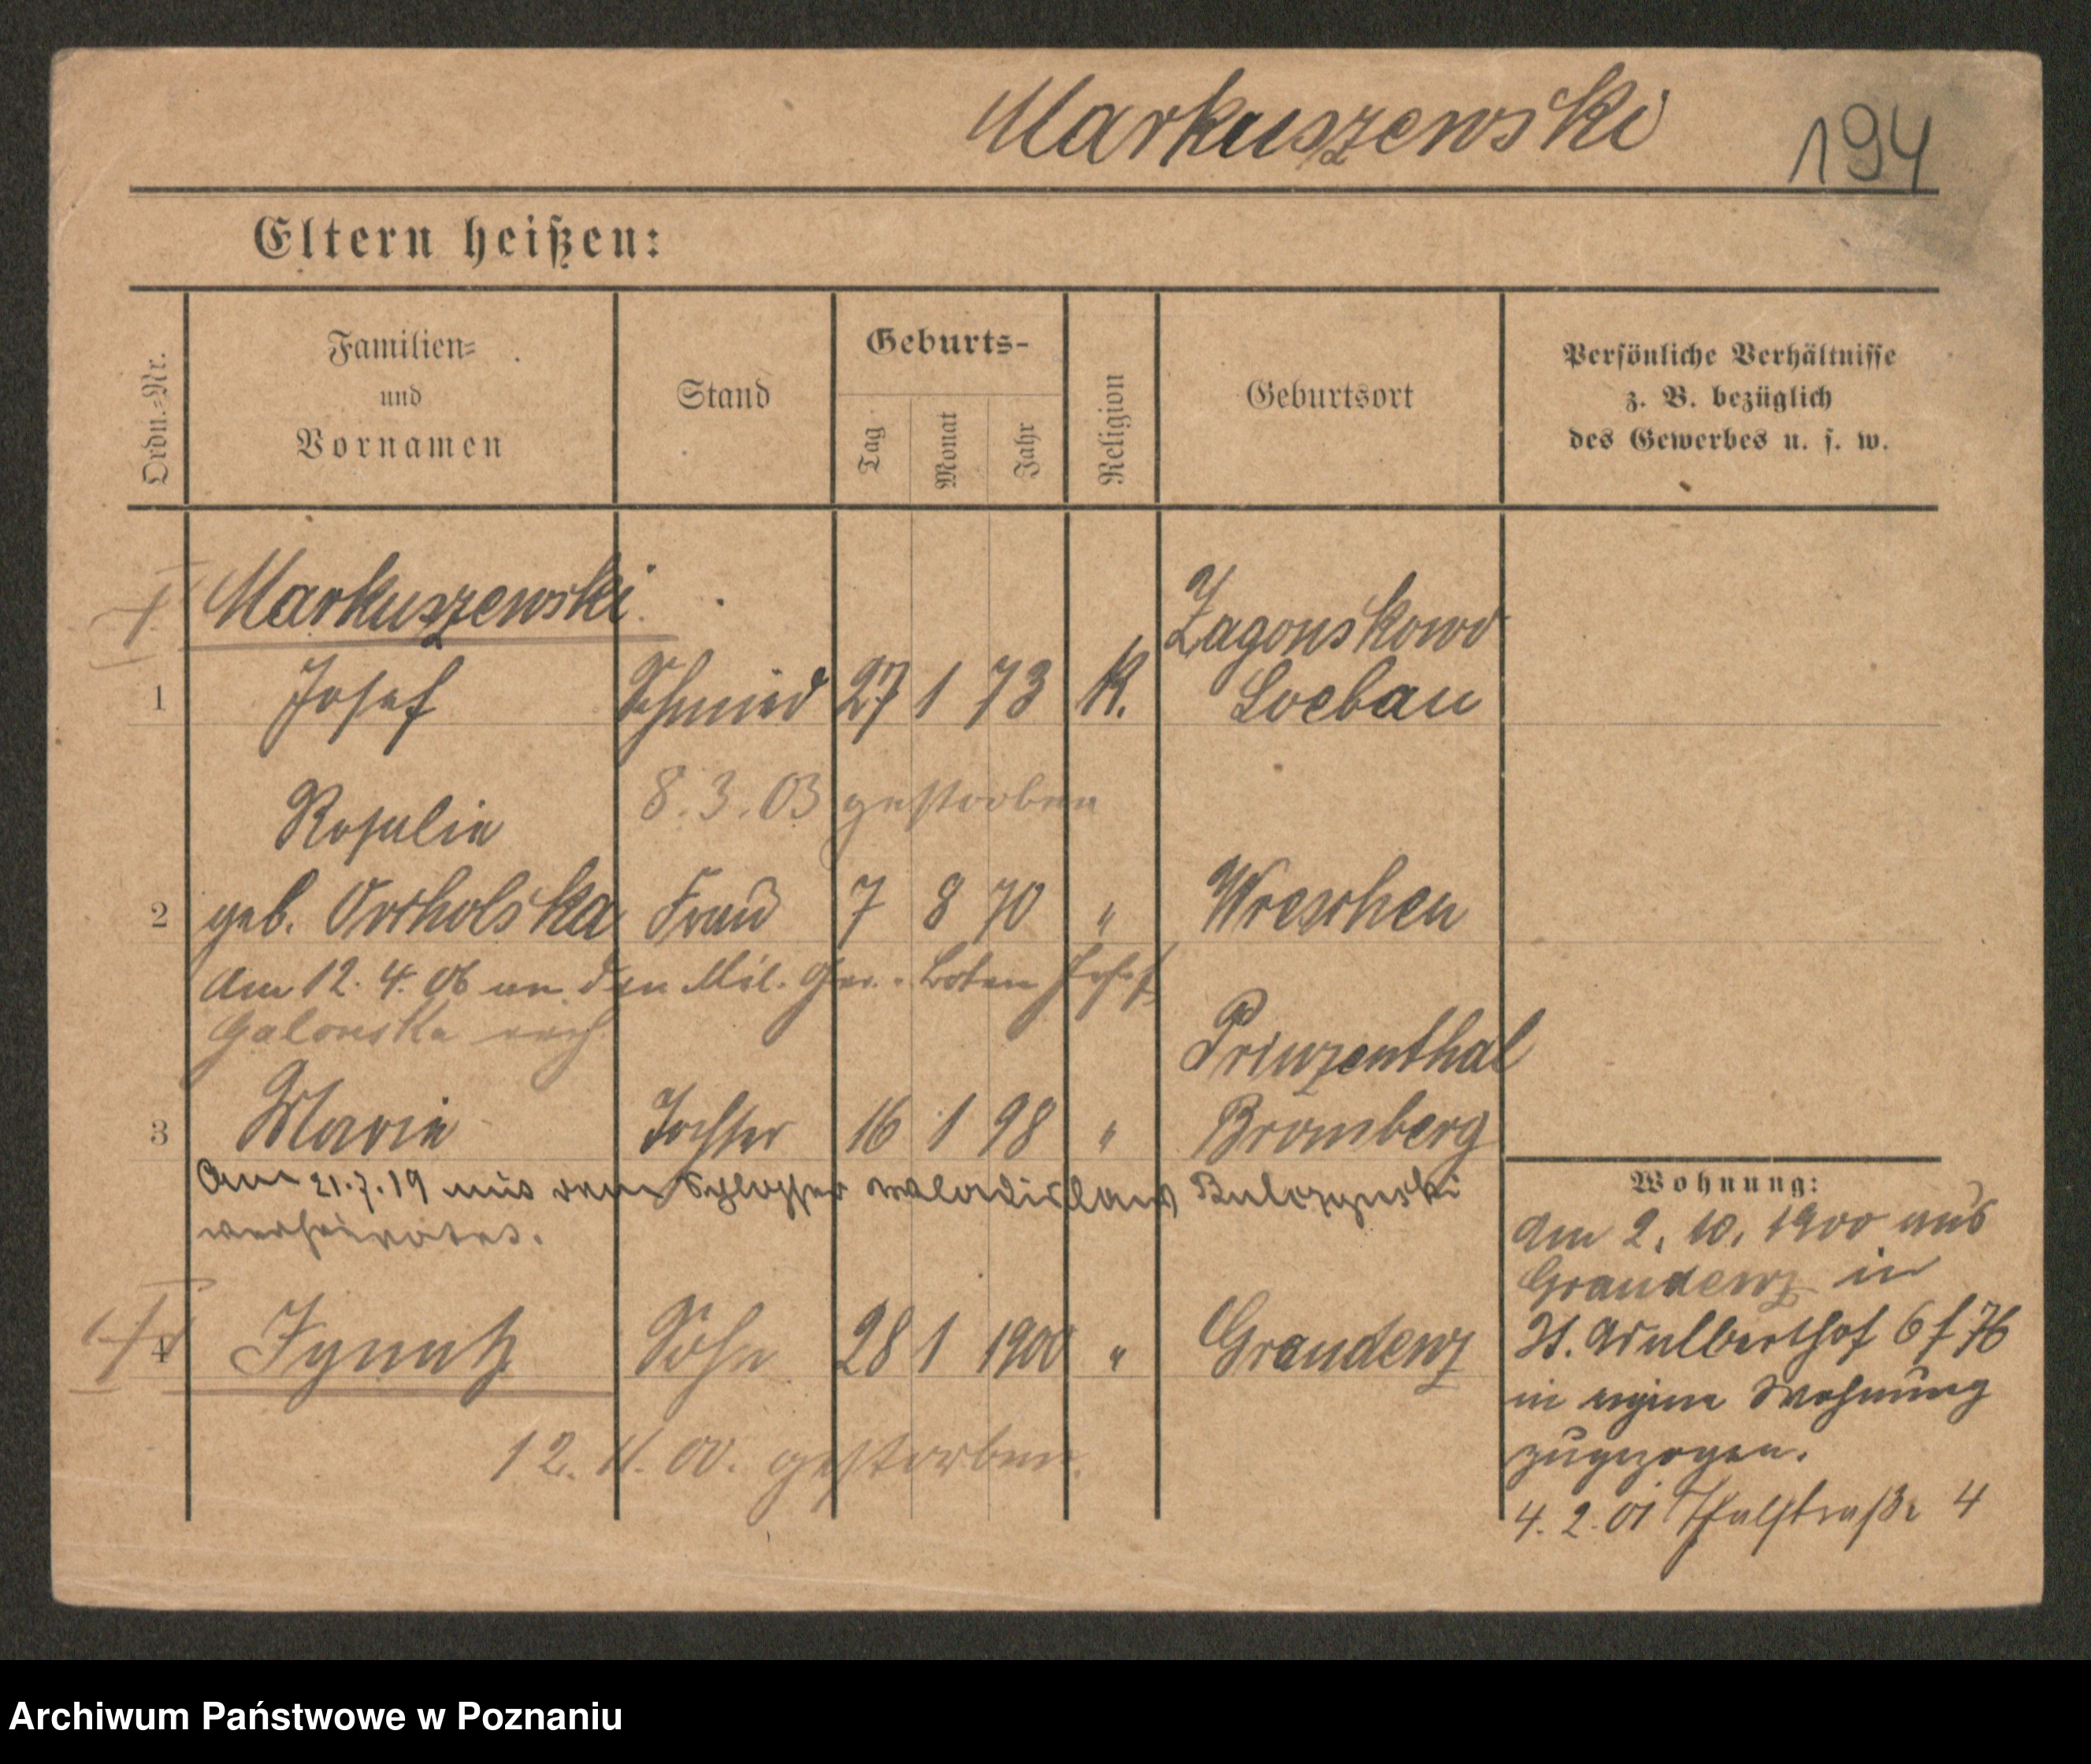 Markuszewski 194
Eltern heißen:
Ordn.-Nr.
Familien-
und
Vornamen
Stand
Geburts-
Tag
Monat
Jahr
Religion
Geburtsort
Persönliche Verhältnisse
z. B. bezüglich
des Gewerbes u. s. w.
Markuszewski
1 Josef Schmied 27 1 73 K. Zagonskowo
Loebau
8.3.03 gestorben
Rosalie
2 geb. Orcholska Frau 7 8 70 " Wreschen
Am 12.4.06 an den Mil. Ger.-Boten Josef
Galonska verh.
3 Marie Tochter 16 1 98 " Prinzenthal
Bromberg
Am 21.7.19 mit dem Schlosser Wladislaus
verheiratet.
4 Ignatz Sohn 28 1 1900 " Graudenz
12.11.00. gestorben.
Wohnung:
Am 2.10.1900 aus
Graudenz in
St. Adalberthof 6
in eigene Wohnung
zugezogen.
4.2.01 Thalstraße 4
Archiwum Państwowe w Poznaniu